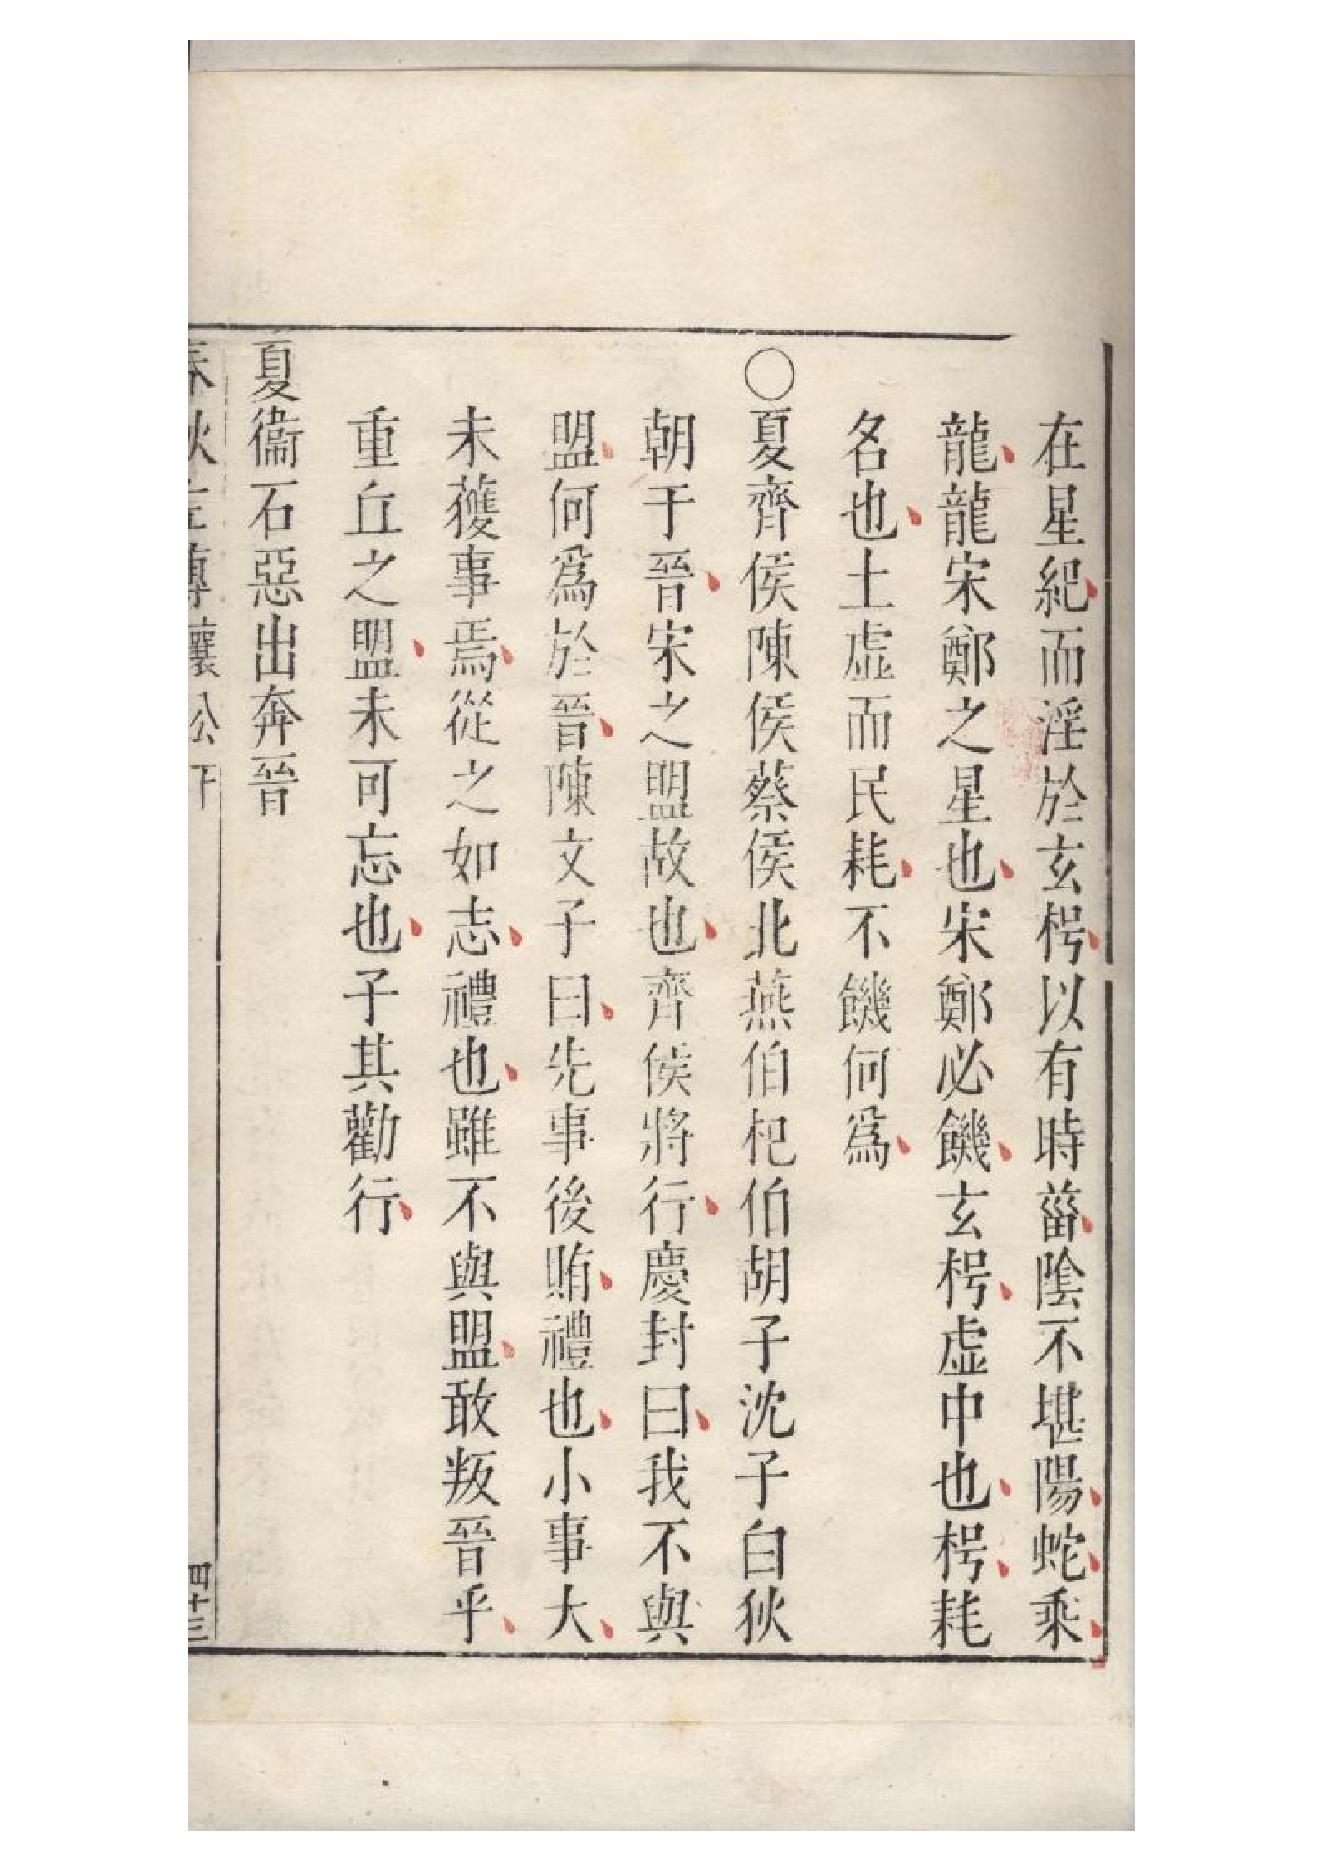 在星紀而淫於玄枵以有時菑陰不堪陽蛇乘
龍龍宋鄭之星也宋鄭必饑玄枵虛中也枵耗
名也土虛而民耗不饑何爲
○夏齊侯陳侯蔡侯北燕伯杞伯胡子沈子白狄
朝于晉宋之盟故也齊侯將行慶封曰我不與
盟何爲於晉陳文子曰先事後賄禮也小事大
未獲事焉從之如志禮也雖不與盟敢叛晉乎
重丘之盟未可忘也子其勸行
夏衞石惡出奔晉
春秋左傳襄公下
四十三